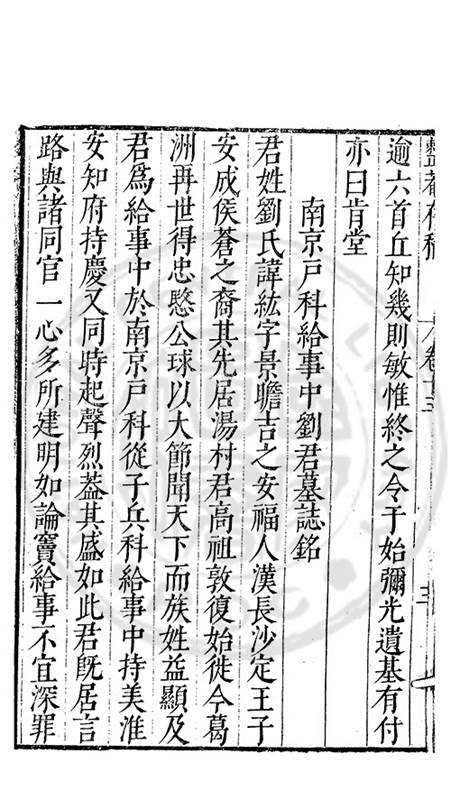 整菴存稿 卷十三 三
逾六首丘知幾則敏惟終之令于始彌光遺基有付
亦曰肯堂
南京戶科給事中劉君墓誌銘
君姓劉氏諱紘字景瞻吉之安福人漢長沙定王子
安成侯蒼之裔其先居湯村君高祖敦復始徙今葛
洲再世得忠愍公球以大節聞天下而族姓益顯及
君爲給事中於南京戶科從子兵科給事中持美淮
安知府持慶又同時起聲烈葢其盛如此君旣居言
路與諸同官一心多所建明如論竇給事不宜深罪